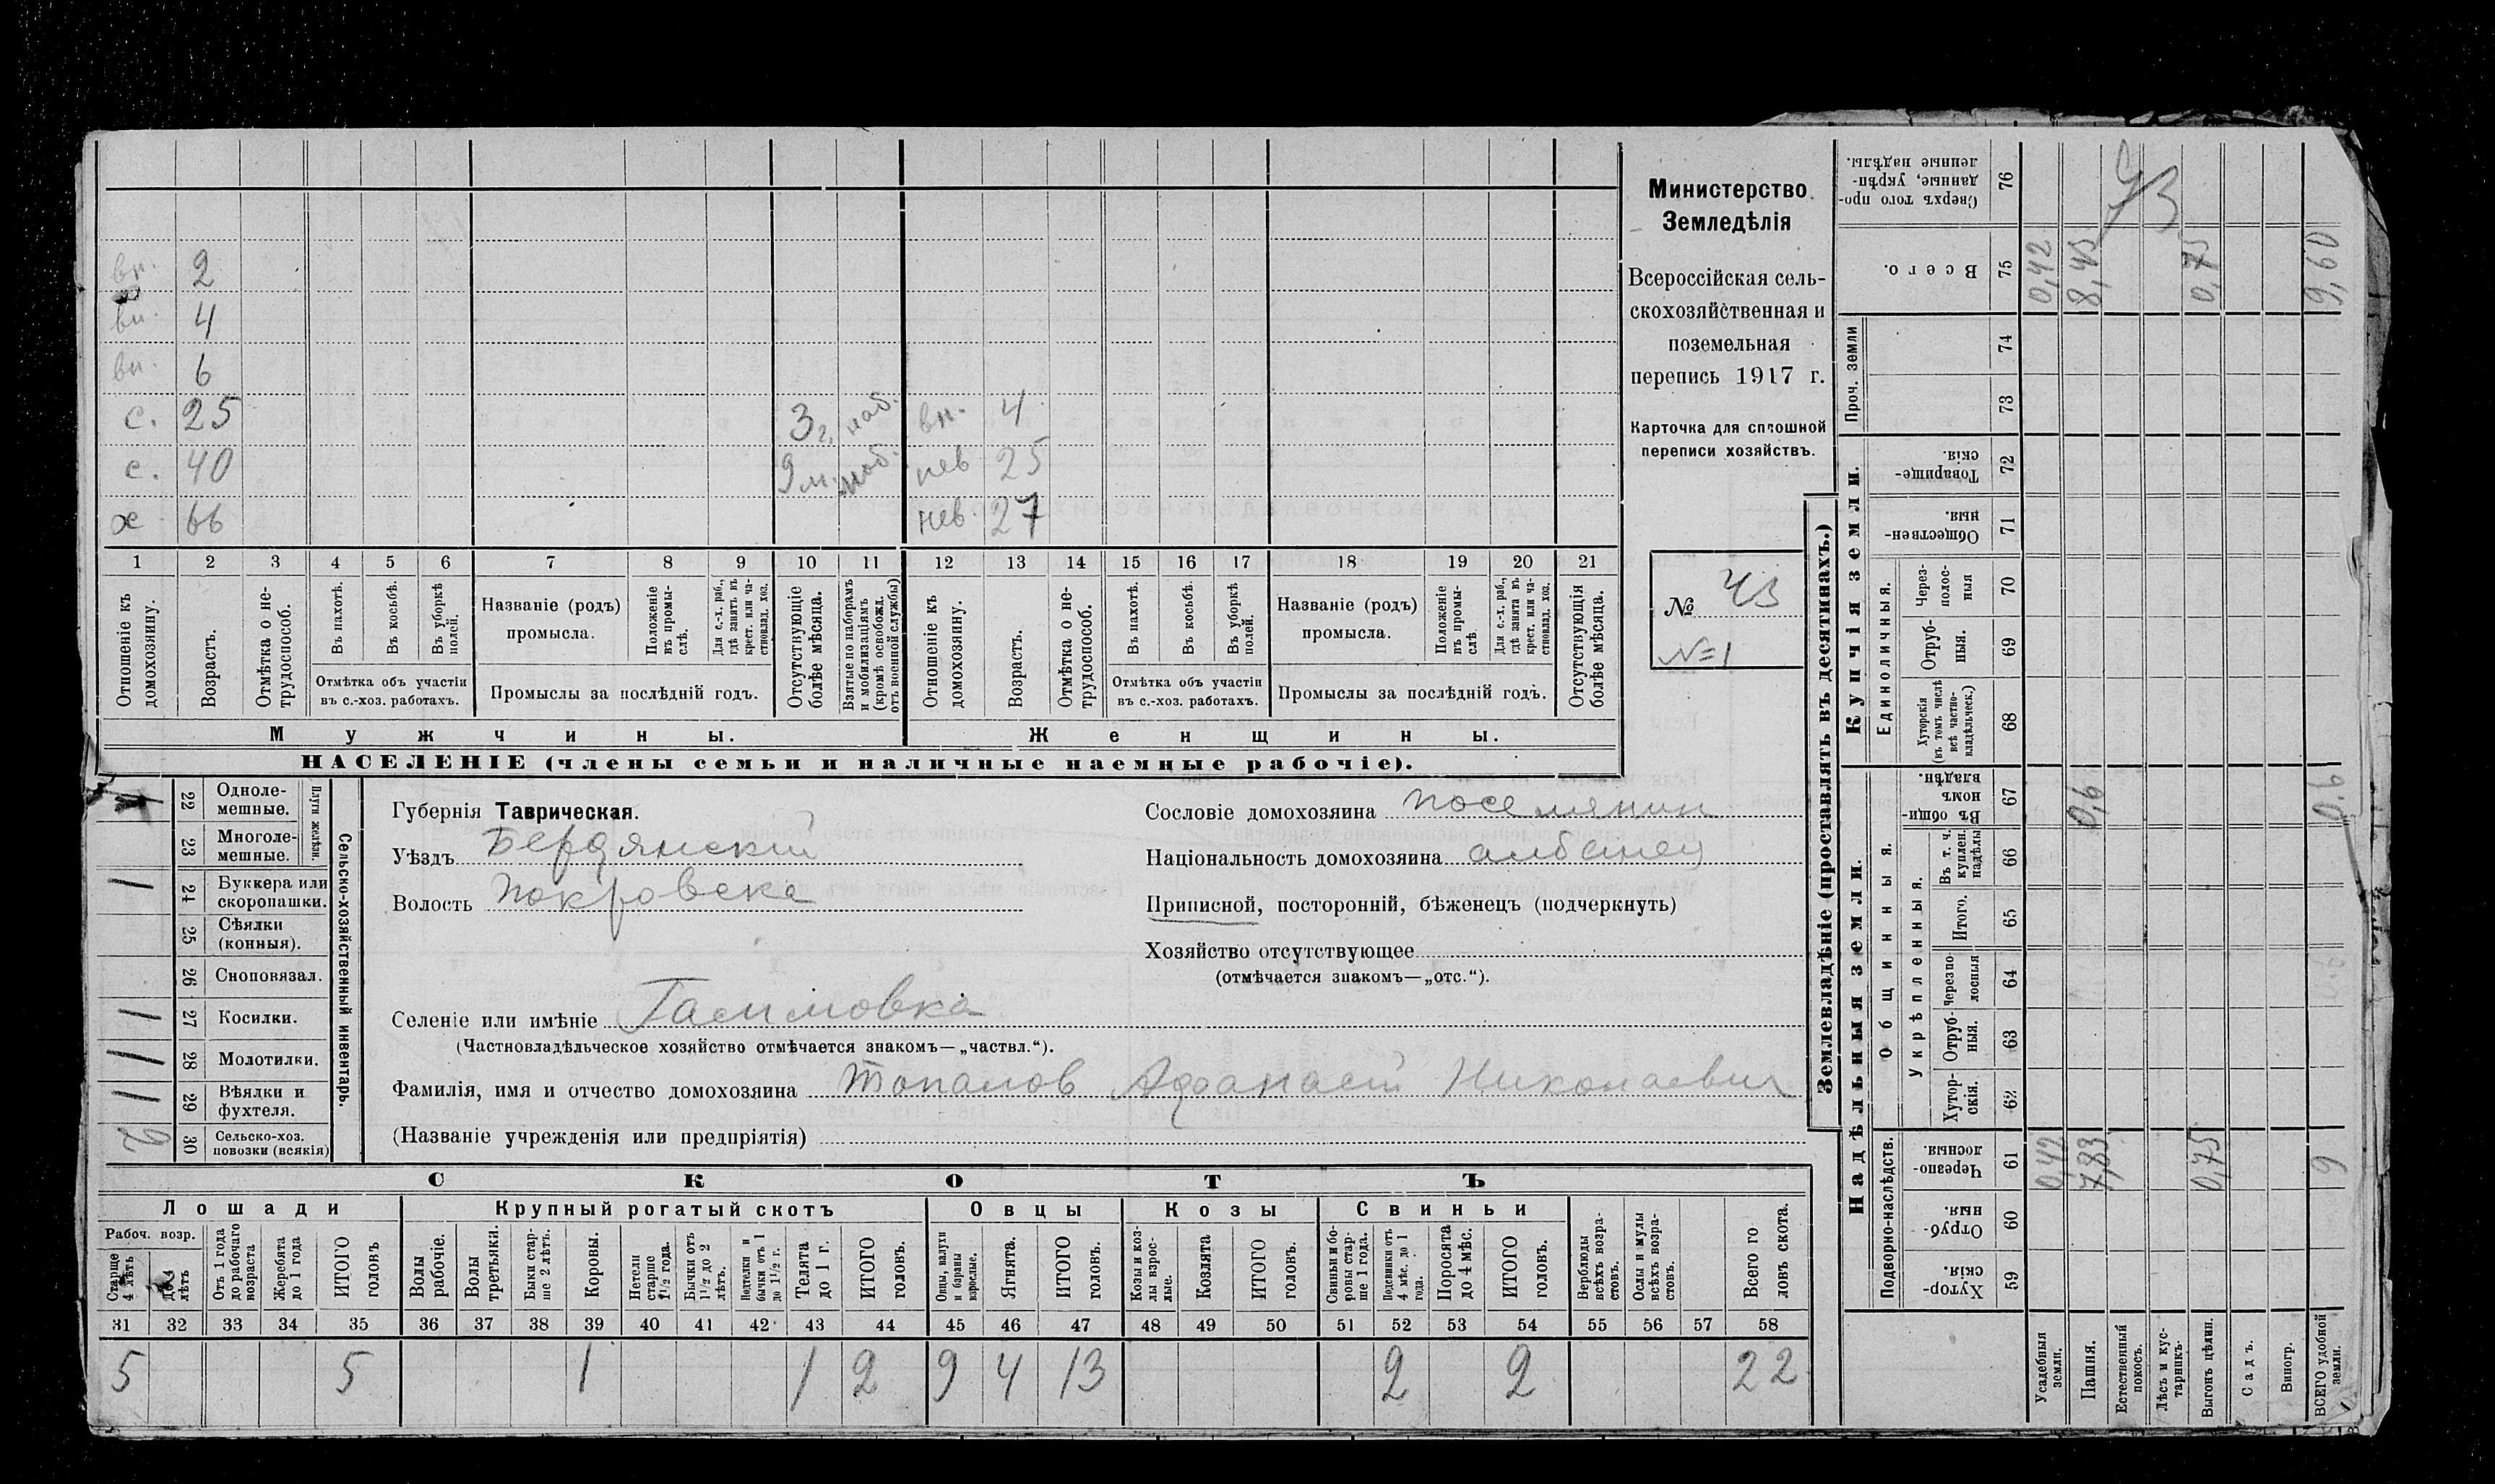 вн. 2
вн. 4
вн. 6
с. 25 3 г. моб. вн. 4
с. 40 9 м. моб. нев 25
х 66 нев. 27
1 2 3 4 5 6 7 8 9 10 11 12 13 14 15 16 17 18 19 20 21
Отношеніе къ домохозяину.
Возрастъ.
Отмѣтка о не-трудоспособ.
Въ пахотѣ.
Въ косьбѣ.
Въ уборкѣ полей.
Отмѣтка объ участіи
въ с.-хоз. работахъ.
Названіе (родъ)
промысла.
Положеніе въ промы-слѣ.
Для с.-х. раб., гдѣ занятъ въ крест. или ча-стновлад. хоз.
Промыслы за послѣдній годъ.
Отсутствующіе болѣе мѣсяца.
Взятые по наборамъ и мобилизаціямъ (кромѣ освобожд. отъ военной службы)
Отношеніе къ домохозяину.
Возрастъ.
Отмѣтка о не-трудоспособ.
Въ пахотѣ.
Въ косьбѣ.
Въ уборкѣ полей.
Отмѣтка объ участіи
въ с.-хоз. работахъ.
Названіе (родъ)
промысла.
Положеніе въ промы-слѣ.
Для с.-х. раб., гдѣ занята въ крест. или ча-стновлад. хоз.
Промыслы за послѣдній годъ.
Отсутствующія болѣе мѣсяца.
Мужчины. Женщины.
НАСЕЛЕНІЕ (члены семьи и наличные наемные рабочіе).
Министерство
Земледѣлія
Всероссійская сель-
скохозяйственная и
поземельная
перепись 1917 г.
Карточка для сплошной
переписи хозяйствъ.
№ 43
N=1
22 Одноле-мешные.
23 Многоле-мешные.
Плуги желѣзн.
1 24 Буккера или скоропашки.
25 Сѣялки (конныя).
26 Сноповязал.
1 27 Косилки.
1 28 Молотилки.
1 29 Вѣялки и фухтеля.
2 30 Сельско-хоз. повозки (всякія)
Сельско-хозяйственный инвентарь.
Губернія Таврическая.
Уѣздъ Бердянскій
Волость Покровска
Селеніе или имѣніе Гасимовка
(Частновладѣльческое хозяйство отмѣчается знакомъ—„частвл.“).
Фамилія, имя и отчество домохозяина Топалов Афанасій Николаевич
(Названіе учрежденія или предпріятія)
Сословіе домохозяина поселянин
Національность домохозяина албанец
Приписной, посторонній, бѣженецъ (подчеркнуть)
Хозяйство отсутствующее
(отмѣчается знакомъ—„отс.“).
СКОТЪ
Лошади Крупный рогатый скотъ Овцы Козы Свиньи
Рабоч. возр.
Старше 4 лѣтъ
До 4 лѣтъ
Отъ 1 года до рабочаго возраста
Жеребята до 1 года
ИТОГО головъ
Волы рабочіе.
Волы третьяки.
Быки стар-ше 2 лѣтъ.
Коровы.
Нетели старше 1½ года.
Бычки отъ 1½ до 2 лѣтъ.
Подтелки и бычки отъ 1 до 1½ г.
Телята до 1 г.
ИТОГО головъ.
Овцы, валухи и бараны взрослые.
Ягнята.
ИТОГО головъ.
Козы и коз-лы взрос-лые.
Козлята
ИТОГО головъ.
Свиньи и бо-ровы стар-ше 1 года.
Подсвинки отъ 4 мѣс. до 1 года.
Поросята до 4 мѣс.
ИТОГО головъ.
Верблюды всѣхъ возра-стовъ.
Ослы и мулы всѣхъ возра-стовъ.
Всего го ловъ скота.
31 32 33 34 35 36 37 38 39 40 41 42 43 44 45 46 47 48 49 50 51 52 53 54 55 56 57 58
5 5 1 1 2 9 4 13 2 2 22
Землевладѣніе (проставлять въ десятинахъ.)
43
Сверхъ того про-данные, укрѣп-ленные надѣлы. 76
Всего. 75 0,42 8,45 0,75 9,60
Проч. земли 74
73
Купчія земли.
Товарище-скія. 72
Обществен-ныя. 71
Единоличныя.
Через-полос-ныя 70
Отруб-ныя. 69
Хуторскія (въ томъ числѣ всѣ частно-владѣльческ.) 68
Надѣльныя земли.
Общинныя.
Въ общин-номъ владѣн. 67 0,6 0,6
Укрѣпленныя.
Въ т. ч. куплен. надѣлы 66
Итого. 65
Черезпо-лосныя 64
Отруб-ныя. 63
Хутор-скія. 62
Подворно-наслѣдств.
Черезпо-лосныя 61 0,42 7,83 0,75 9
Отруб-ныя. 60
Хутор-скія. 59
Усадебныя земли.
Пашня.
Естественный покосъ.
Лѣсъ и кус-тарникъ.
Выгонъ цѣлин.
Садъ.
Виногр.
ВСЕГО удобной земли.